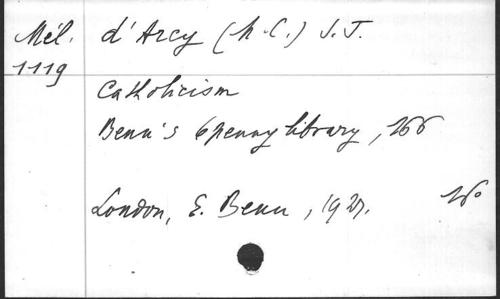 Mél. d'Arcy (M.C.) S.J.
1119
Catholicism
Benn's 6penny library, 166
London, E. Benn, 1927. 16°